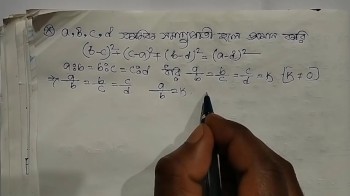 a.b.c.d ক্রমিক সমানুপাতী হলে প্রমাণ করি
(b-c)²+(c-a)²+(b-d)²=(a-d)²
a:b=b:c=c:d ধরি a/b=b/c=c/d=K [K≠0]
⇒ a/b=b/c=c/d a/b=K